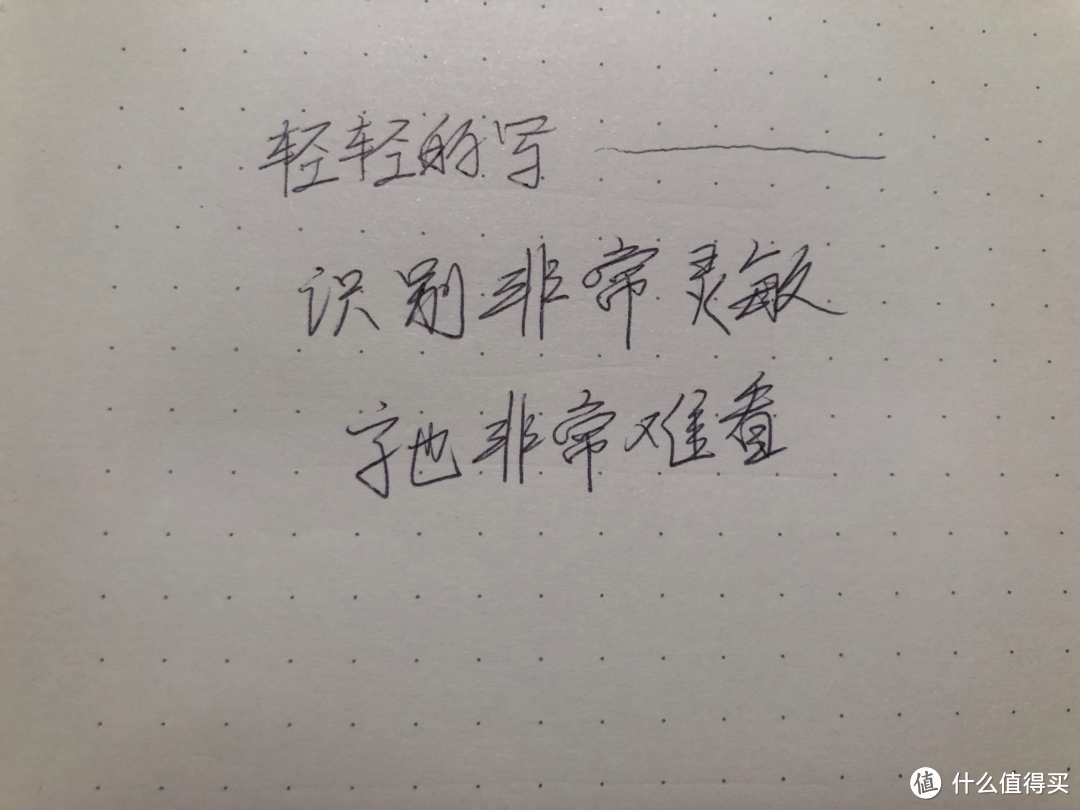 轻轻的写
识别非常灵敏
字也非常难看
值 什么值得买